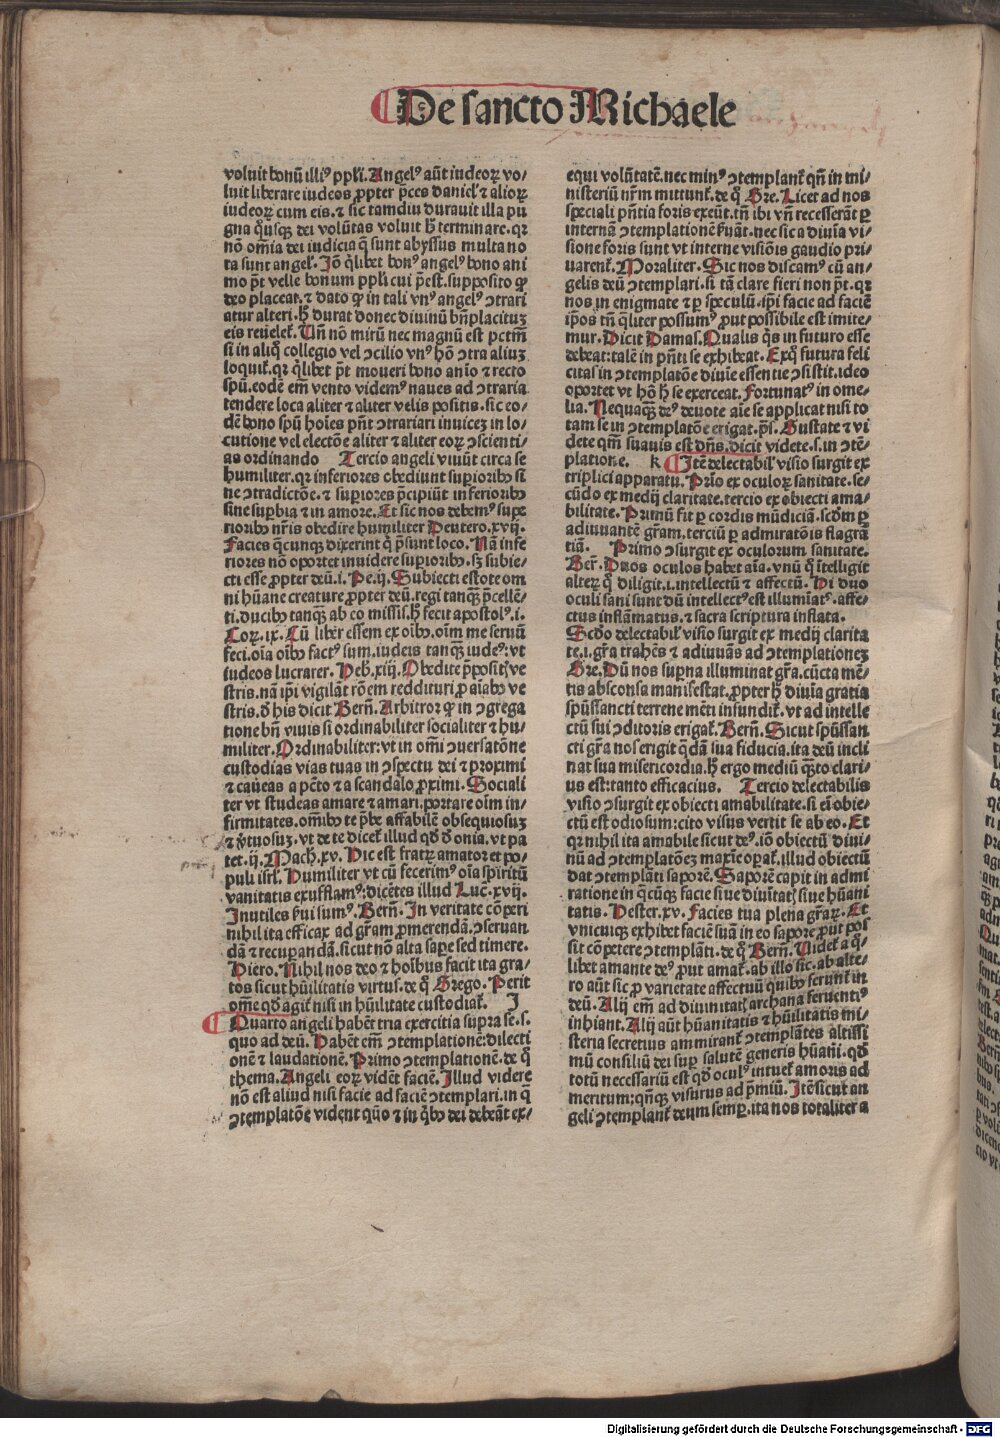 De sancto Michaele
voluit bonū illi⁹ ppl̓i. Angel⁹ aūt iudeoꝝ vo⸗
luit liberare iudeos ꝓpter p̄ces daniel̓ ⁊ alioꝝ
iudeoꝝ cum eis. ⁊ sic tamdiu durauit illa pu
gna q̊usqꝫ dei volūtas voluit h̄ terminare. qꝛ
nō om̄ia dei iudicia q̄ sunt abyssus multa no
ta sunt angel̓. Jō q̄libet bon⁹ angel⁹ bono ani
mo p̄t velle bonum ppl̓i cui p̄est. supposito ꝙ
deo placeat. ⁊ dato ꝙ in tali vn⁹ angel⁹ ↄtrari
atur alteri. h̄ durat donec diuinū bn̄placituꝫ
eis reuelet̄. Un̄ nō mirū nec magnū est pctm̄
si in aliq̊ collegio vel ↄcilio vn⁹ hō ↄtra aliuꝫ
loquit̄. qꝛ q̄libet p̄t moueri bono aīo ⁊ recto
spū. eodē em̄ vento videm⁹ naues ad ↄtraria
tendere loca aliter ⁊ aliter velis positis. sic eo⸗
dē bono spū hoīes pn̄t ↄtrariari inuiceꝫ in lo⸗
cutione vel electōe aliter ⁊ aliter eoꝝ ↄscienti⸗
as ordinando Tercio angeli viuūt circa se
humiliter. qꝛ inferiores obediunt supiorib⁹ si
ne ↄtradictōe. ⁊ supiores p̄cipiūt inferiorib⁹
sine supbia ⁊ in amore. Et sic nos debem⁹ supe
riorib⁹ nr̄is obedire humiliter Deutero. xvij.
Facies q̄cunqꝫ dixerint q̇ p̄sunt loco. Nā infe
riores nō oportet inuidere supiorib⁹. sꝫ subie⸗
cti esse ꝓpter deū. i. Pe. ij. Subiecti estote om
ni hūane creature ꝓpter deū. regi tanqꝫ̄ p̄cellē⸗
ti. ducib⁹ tanqꝫ̄ ab eo missis. h̄ fecit apostol⁹. i.
Coꝝ. ix. Cū liber essem ex oīb⁹. oīm me seruū
feci. oīa oīb⁹ fact⁹ sum. iudeis tanqꝫ̄ iude⁹: vt
iudeos lucrarer. Heb. xiij. Obedite p̄posit̓ ve
stris. nā ip̄i vigilāt rōem reddituri ꝓ aīab⁹ ve
stris. d̓ his dicit Bern̄. Arbitror ꝙ in ↄgrega
tione bn̄ viuis si ordinabiliter socialiter ⁊ hu⸗
militer. Ordinabiliter: vt in om̄i ↄuersatōne
custodias vias tuas in ↄspectu dei ⁊ proximi
⁊ caueas a pctō ⁊ a scandalo ꝓximi. Sociali
ter vt studeas amare ⁊ amari. portare oīm in⸗
firmitates. om̄ib⁹ te p̄be affabilē obsequiosuꝫ
⁊ v̓tuosuꝫ. vt de te dicet̄ illud qd̓ d̓ onia. vt pa
tet. ij. Mach. xv. Hic est fratrꝝ amator et po⸗
puli isrl̓. Humiliter vt cū fecerim⁹ oīa spiritū
vanitatis exufflam⁹: dicētes illud Luc. xvij.
Inutiles ẜui sum⁹. Bern̄. In veritate cōperi
nihil ita efficax ad gr̄am ꝓmerendā. ↄseruan
dā ⁊ recuperandā. sicut nō alta sapere sed timere.
Hiero. Nihil nos deo ⁊ hoībus facit ita gra⸗
tos sicut hūilitatis virtus. de q̊ Grego. Perit
om̄e qd̓ agit̄ nisi in hūilitate custodiat̄. J
Quarto angeli habēt tria exercitia supra se. s.
quo ad deū. Habēt em̄ ↄtemplationē: dilecti
onē ⁊ laudationē. Primo ↄtemplationē. de q̊
thema. Angeli eoꝝ vidēt faciē. Illud videre
nō est aliud nisi facie ad faciē ↄtemplari. in q̄
ↄtemplatōe vident quō ⁊ in q̊b⁹ dei debeāt ex⸗
equi volūtatē. nec min⁹ ↄtemplant̄ qn̄ in mi⸗
nisteriū nr̄m mittunt̄. de q̊ Gre. Licet ad nos
speciali p̄ntia foris exeūt. tn̄ ibi vn̄ recesserāt ꝑ
internā ↄtemplationē ẜuāt. nec sic a diuīa vi⸗
sione foris sunt vt interne visiōis gaudio pri⸗
uarent̄. Moraliter. Sic nos discam⁹ cū an⸗
gelis deū ↄtemplari. si tā clare fieri non p̄t. qꝛ
nos in enigmate ⁊ ꝑ speculū. ip̄i facie ad faciē
ip̄os tn̄ q̄liter possum⁹ ꝓut possibile est imite⸗
mur. Dicit Damas. Qualis q̇s in futuro esse
debeat: talē in p̄nti se exhibeat. Exq̊ futura feli
citas in ↄtemplatōe diuīe essentie ↄsistit. ideo
oportet vt hō h̄ se exerceat. Fortunat⁹ in ome⸗
lia. Nequaqꝫ̄ de⁹ deuote aīe se applicat nisi to
tam se in ↄtemplatōe erigat. ps̄. Gustate ⁊ vi
dete qm̄ suauis est dn̄s. dicit videte. s. in ↄtē⸗
platione. K Itē delectabil̓ visio surgit ex
triplici apparatu. Prīo ex oculoꝝ sanitate. se⸗
cūdo ex medij claritate. tercio ex obiecti ama⸗
bilitate. Primū fit ꝑ cordis mūdiciā. scd̓m ꝑ
adiuuantē gr̄am. terciū ꝑ admiratōis flagrā
tiā. Primo ↄsurgit ex oculorum sanitate.
Ber̄. Duos oculos habet aīa. vnū q̊ ītelligit
alteꝝ q̊ diligit. i. intellectū ⁊ affectū. Hi duo
oculi sani sunt dū intellect⁹ est illumīat⁹. affe⸗
ctus inflāmatus. ⁊ sacra scriptura inflata.
Scd̓o delectabil̓ visio surgit ex medij clarita
te. i. gr̄a trahēs ⁊ adiuuās ad ↄtemplationeꝫ
Gre. Dū nos supna illuminat gr̄a. cūcta mē⸗
tis absconsa manifestat. ꝓpter h̄ diuīa gratia
spūssancti terrene mēti infundit̄. vt ad intelle
ctū sui ↄditoris erigat̄. Bern̄. Sicut spūssan
cti gr̄a nos erigit q̄dā sua fiducia. ita deū incli
nat sua misericordia. h̄ ergo mediū qꝫ̄to clari⸗
us est: tanto efficacius. Tercio delectabilis
visio ↄsurgit ex obiecti amabilitate. si em̄ obie⸗
ctū est odiosum: cito visus vertit se ab eo. Et
qꝛ nihil ita amabile sicut de⁹. iō obiectū diui⸗
nū ad ↄtemplatōeꝫ maxīe opat̄. illud obiectū
dat ↄtemplāti saporē. Saporē capit in admi
ratione in q̊cūqꝫ facie siue diuītat̓ siue hūani
tatis. Hester. xv. Facies tua plena gr̄aꝝ. Et
vnicuiqꝫ exhibet faciē suā in eo sapore ꝓut pos
sit cōpetere ↄtemplāti. de q̊ Bern̄. Videt̄ a q̊⸗
libet amante de⁹ ꝓut amat̄. ab illo sic. ab alte⸗
ro aūt sic ꝓ varietate affectuū quib⁹ ferunt̄ in
deū. Alij em̄ ad diuinitat̓ archana feruenti⁹
inhiant. Alij aūt hūanitatis ⁊ hūilitatis mi⸗
steria secretius ammirant̄ ↄtemplātes altissi
mū consiliū dei super salutē generis hūani. qd̓
totū necessariū est qd̓ ocul⁹ intuet̄ amoris ad
meritum: qn̄qꝫ visurus ad p̄miū. Itē sicut an
geli ↄtemplant̄ deum semp. ita nos totaliter a
Digitalisierung gefördert durch die Deutsche Forschungsgemeinschaft - DFG